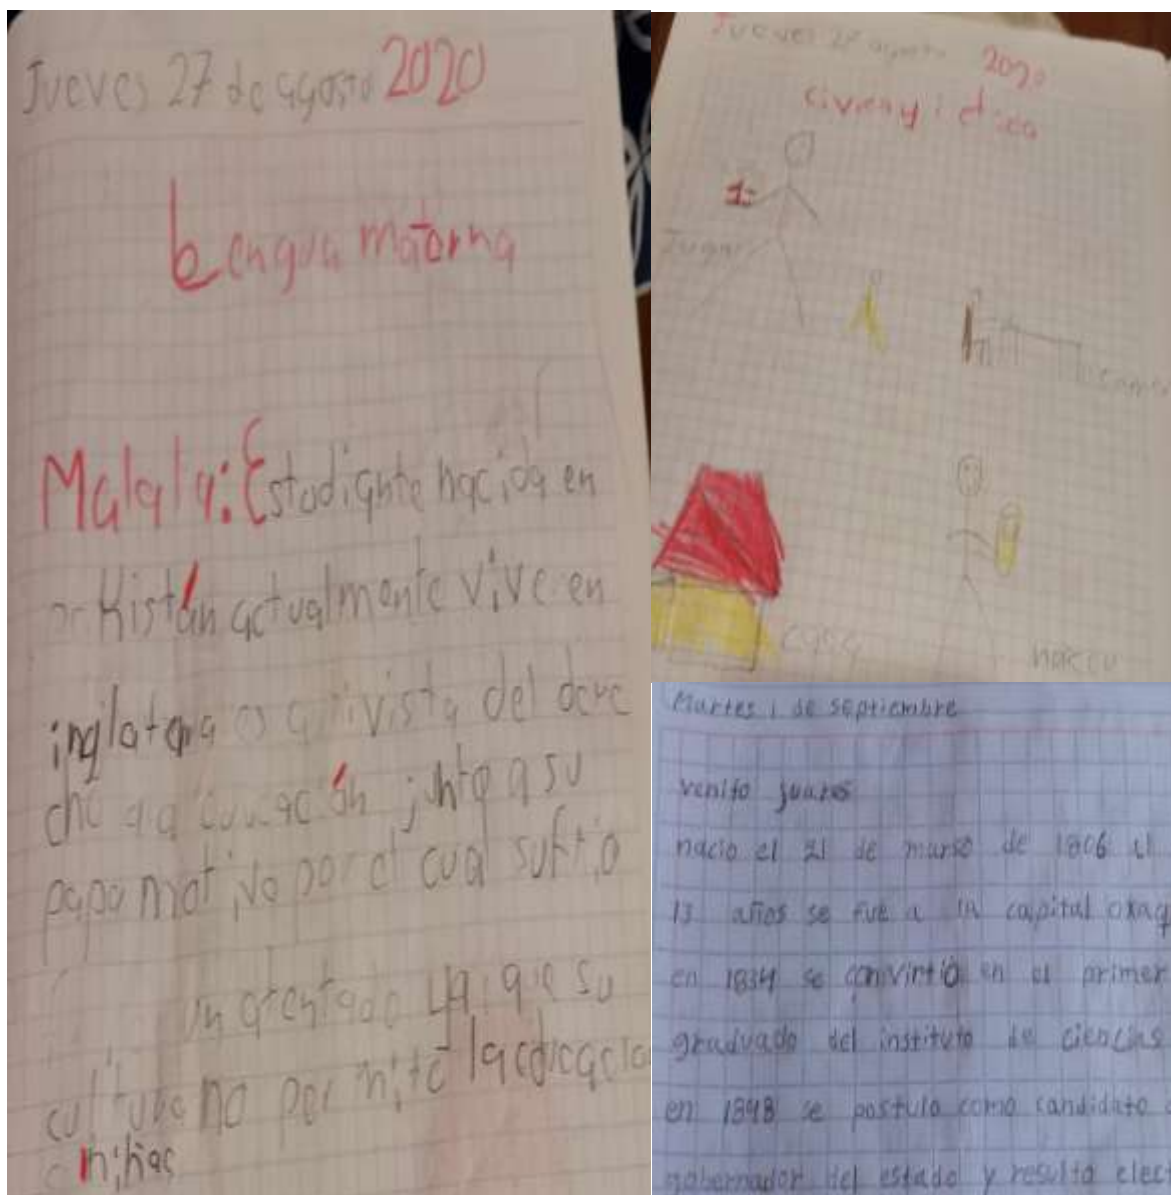 Jueves 27 de agosto 2020
Lengua materna
Malala: Estudiante nacida en
Kistán actualmente vive en
inglaterra es activista del dere
cho a la educación junto a su
papa motivo por el cual sufrio
un atentado ya que su
cultura no permite la educacio
niñas
Jueves 27 agosto 2020
civica y etica
Jugar
casa
Martes 1 de septiembre
venito juares
nacio el 21 de marso de 1806
13 años se fue a la capital oxaq
en 1834 se convirtio en el primer
graduado del instituto de ciencias
en 1848 se postulo como candidato
gobernador del estado y resulto elec